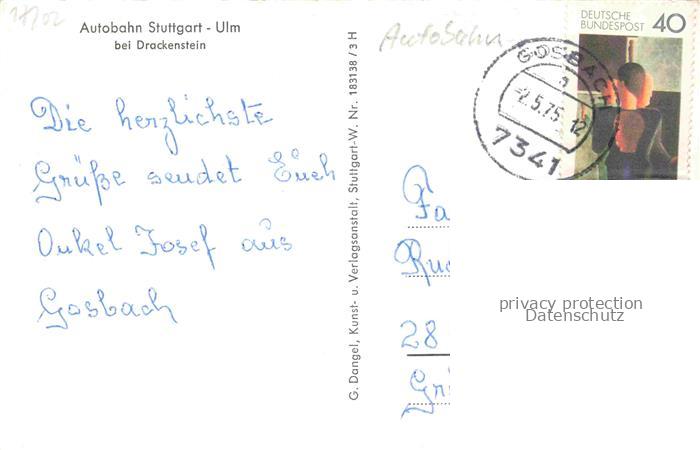 17/02
Autobahn Stuttgart - Ulm
bei Drackenstein
Die herzlichste
Grüße sendet Euch
Onkel Josef aus
Gosbach
G. Dangel, Kunst- u. Verlagsanstalt, Stuttgart-W. Nr. 183138 / 3 H
Autobahn
DEUTSCHE
BUNDESPOST 40
GOSBACH
a
-2.5.75 12
7341
Fa
28
privacy protection
Datenschutz